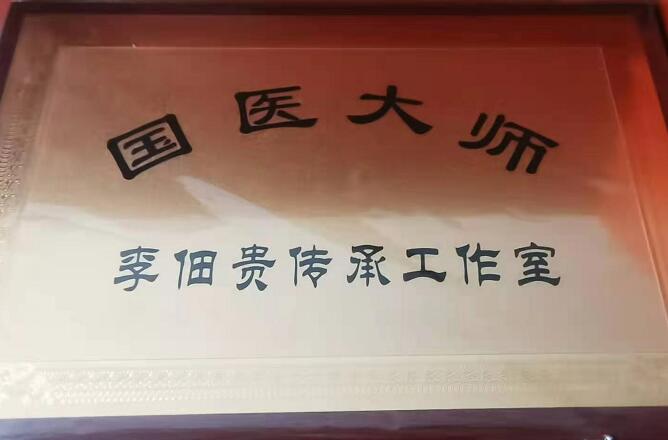 国医大师
李佃贵传承工作室